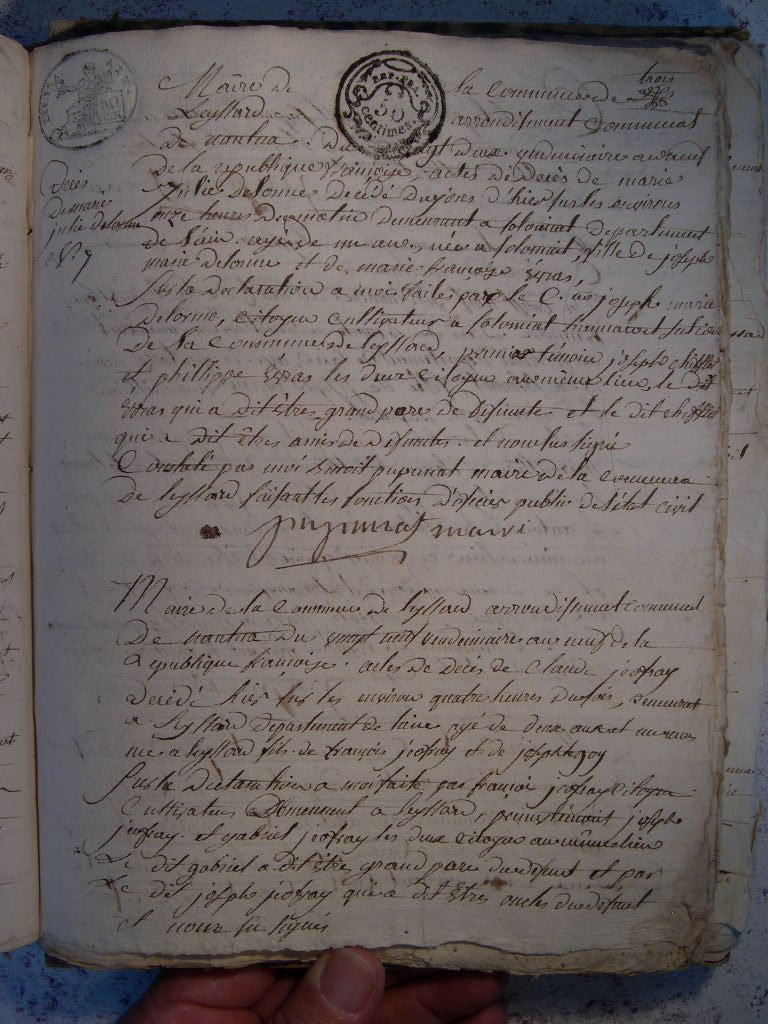 trois
Maire de la commune de
Leyssard arrondissement communal
REP. FRA.
50
centimes
de nantua du vingt deux vendemiaire an neuf
de la republique françoise, actes de decès de marie
Julie Delorme decédé du jour d'hier sur les environs
onze heures du matin demeurant a solomiat departement
de l'ain. agé de un an, née a solomiat, fille de joseph
marie delorme et de marie françoise
decès
de marie
julie delorme
Sur la declaration a moi faite par le C. joseph marie
Delorme, citoyen cultivateur a solomiat
De la commune de leyssard, premier temoin joseph
et philippe les deux citoyen au même lieu, le dit
qui a dit êtres grand pere de defunte et le dit
qui a dit êtres amis de defunte. et non sus signé
Constaté par moi benoit pupunat maire de la commune
de leyssard faisant les fonctions d'officier public de l'état civil
pupunat maire
Maire de la Commune de leyssard arrondissement communal
De nantua du vingt neuf vendemiaire an neuf de la
republique françoise. actes de decès de Claude jeofray
decédé hier sur les environ quatre heures du soir, demeurat
a Leyssard departement de l'ain agé de deux ans et
né a leyssard fils de françois jeofray et de josephte goy
Sur la declaration a moi faite par françois jeofray citoyen
Cultivateur demeurent a leyssard, premier temoint joseph
jeofray. et gabriel jeofray les deux citoyen au même lieu
Le dit gabriel a dit être grand pere du defunt et par
Le dit joseph jeofray qui a dit êtres oncles du defunt
et non su signés